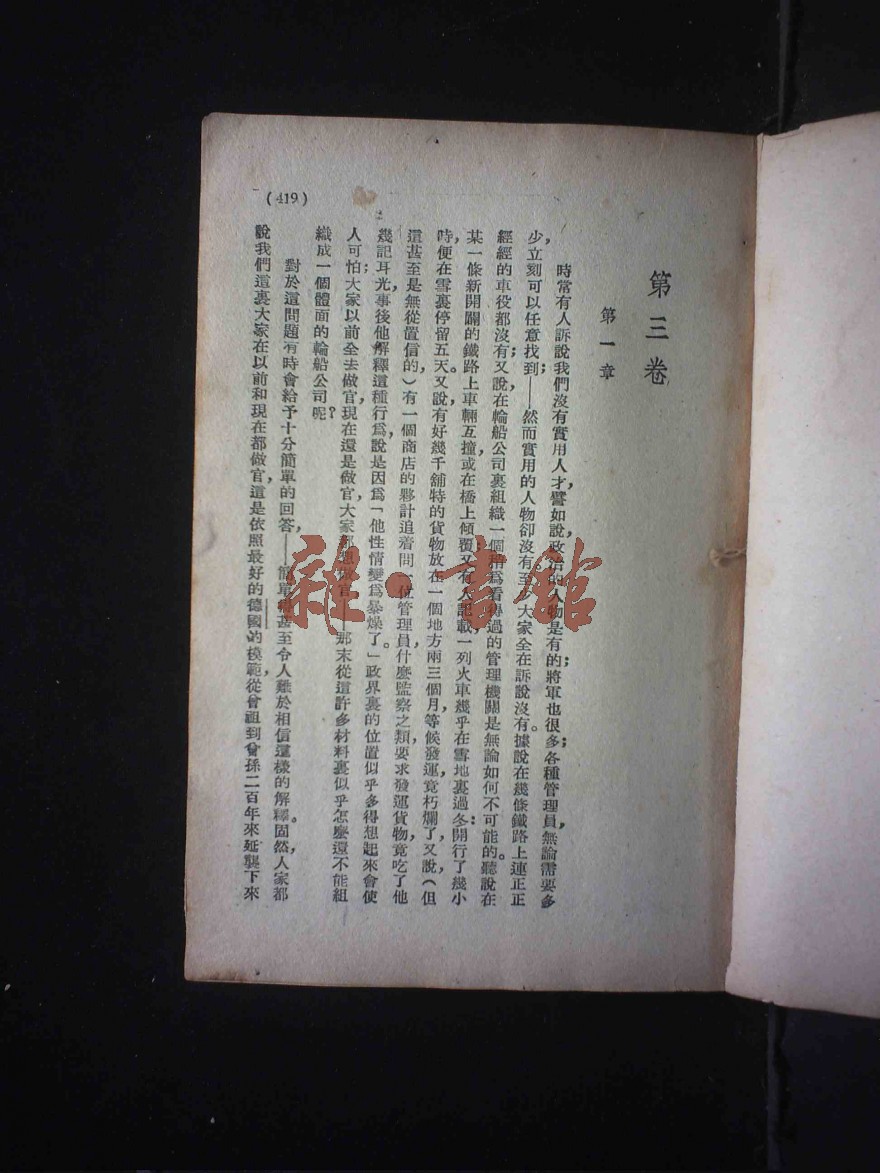 第三卷
第一章
時常有人訴說我們沒有實用人才，譬如說政治的人物是有的；將軍也很多；各種管理員，無論需要多
少，立刻可以任意找到；——然而實用的人物卻沒有。至少大家全在訴說沒有。據說在幾條鐵路上連正正
經經的車役都沒有；又說，在輪船公司裏組織一個稍爲看得過的管理機關是無論如何不可能的。聽說在
某一條新開闢的鐵路上車輛互撞，或在橋上傾覆；又有人記載一列火車幾乎在雪地裏過冬：開行了幾小
時，便在雪裏停留五天。又說，有好幾千舖特的貨物放在一個地方兩三個月，等候發運，竟朽爛了，又說，（但
這甚至是無從置信的，）有一個商店的夥計追着問一位管理員，什麼監察之類，要求發運貨物，竟吃了他
幾記耳光，事後他解釋這種行爲，說是因爲「他性情變爲暴燥了。」政界裏的位置似乎多得想起來會使
人可怕；大家以前全去做官，現在還是做官，大家都想做官——那末從這許多材料裏似乎怎麼還不能組
織成一個體面的輪船公司呢？
對於這問題有時會給予十分簡單的回答，——簡單得甚至令人難於相信這樣的解釋。固然，人家都
說我們這裏大家在以前和現在都做官，這是依照最好的德國的模範，從曾祖到曾孫二百年來延襲下來
(419)
雜·書館